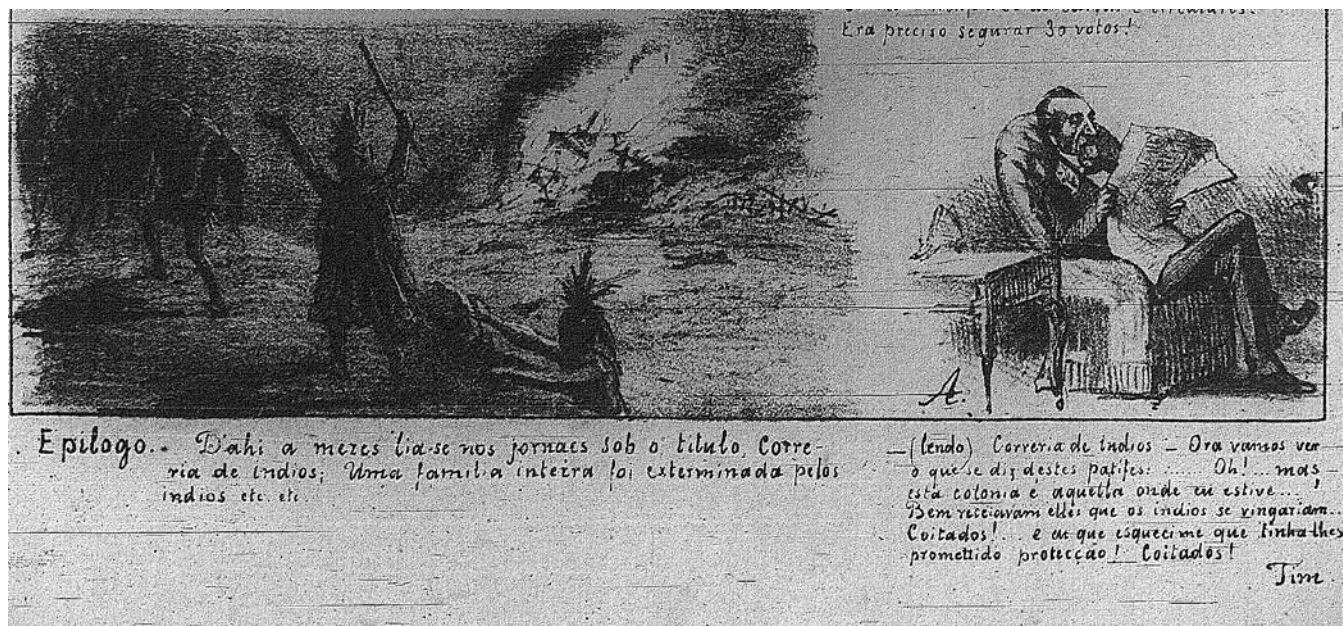 Era preciso segurar 30 votos!
A.
Epilogo.. D'ahi a mezes lia-se nos jornaes sob o titulo, Corre-
ria de indios; Uma familia inteira foi exterminada pelos
indios etc. etc.
— (lendo) Correria de indios — Ora vamos ver
o que se diz destes patifes: ..... Oh!... mas
esta colonia é aquella onde eu estive...
Bem receiavam elles que os indios se vingariam..
Coitados!... e eu que esqueci-me que tinha-lhes
promettido protecção! Coitados!
Tim